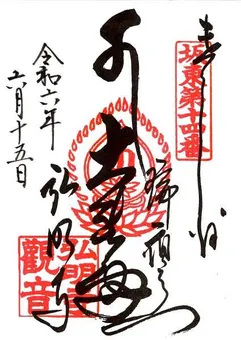 奉拝
坂東第十四番
瑞應山
弘明寺
弘明寺
觀音
令和六年
六月十五日